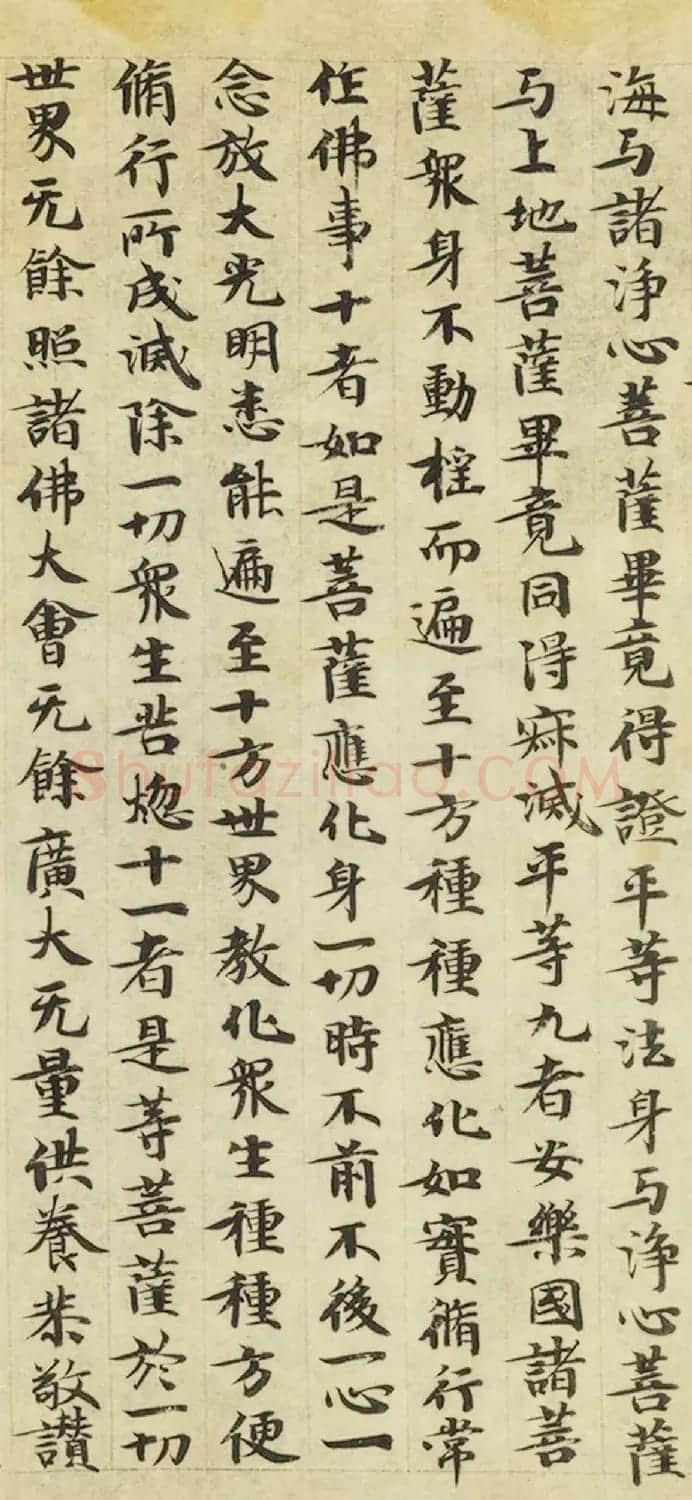 海与諸淨心菩薩畢竟得證平等法身与淨心菩薩
与上地菩薩畢竟同得寂滅平等九者安樂國諸菩
薩衆身不動榣而遍至十方種種應化如實脩行常
作佛事十者如是菩薩應化身一切時不前不後一心一
念放大光明悉能遍至十方世界教化衆生種種方便
脩行所成滅除一切衆生苦惱十一者是等菩薩於一切
世界无餘照諸佛大會无餘廣大无量供養恭敬讚
Shufaziliao.COM